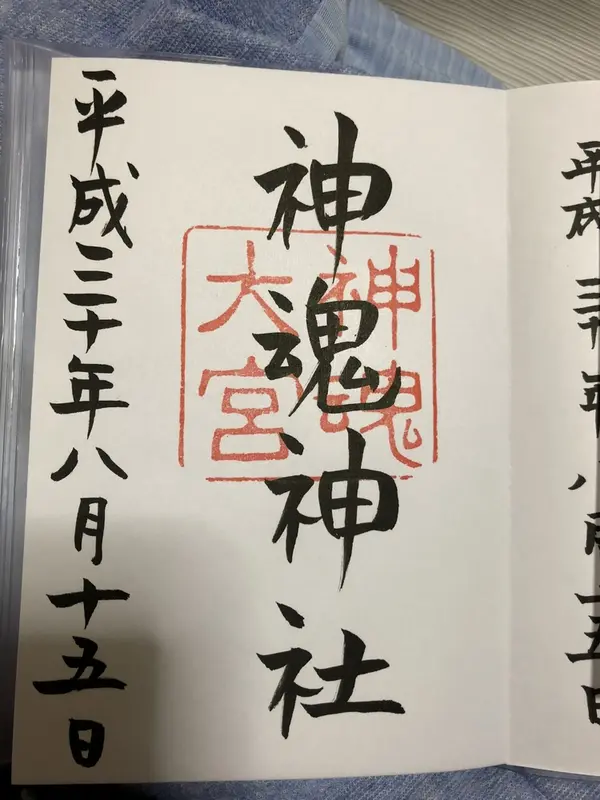 神魂神社
神魂
大宮
平成三十年八月十五日
平成三十年八月十五日